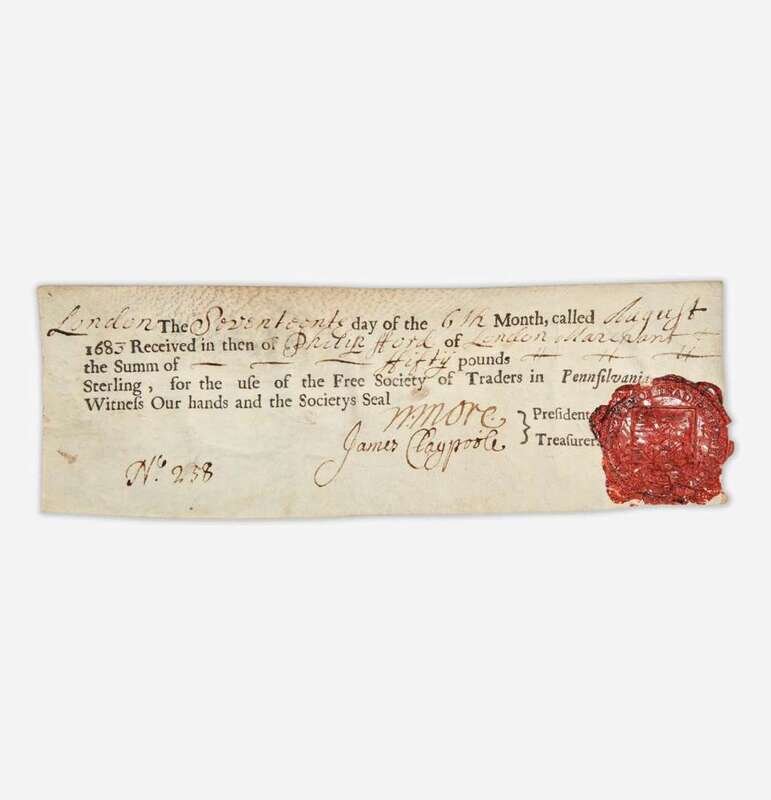 London The Seventeenth day of the 6th Month, called August
1683 Received in then of Philip fford of London Marchant
the Summ of fifty pounds
Sterling, for the use of the Free Society of Traders in Pennsilvania
Witness Our hands and the Societys Seal
N More } President
James Claypoole } Treasurer
No. 258